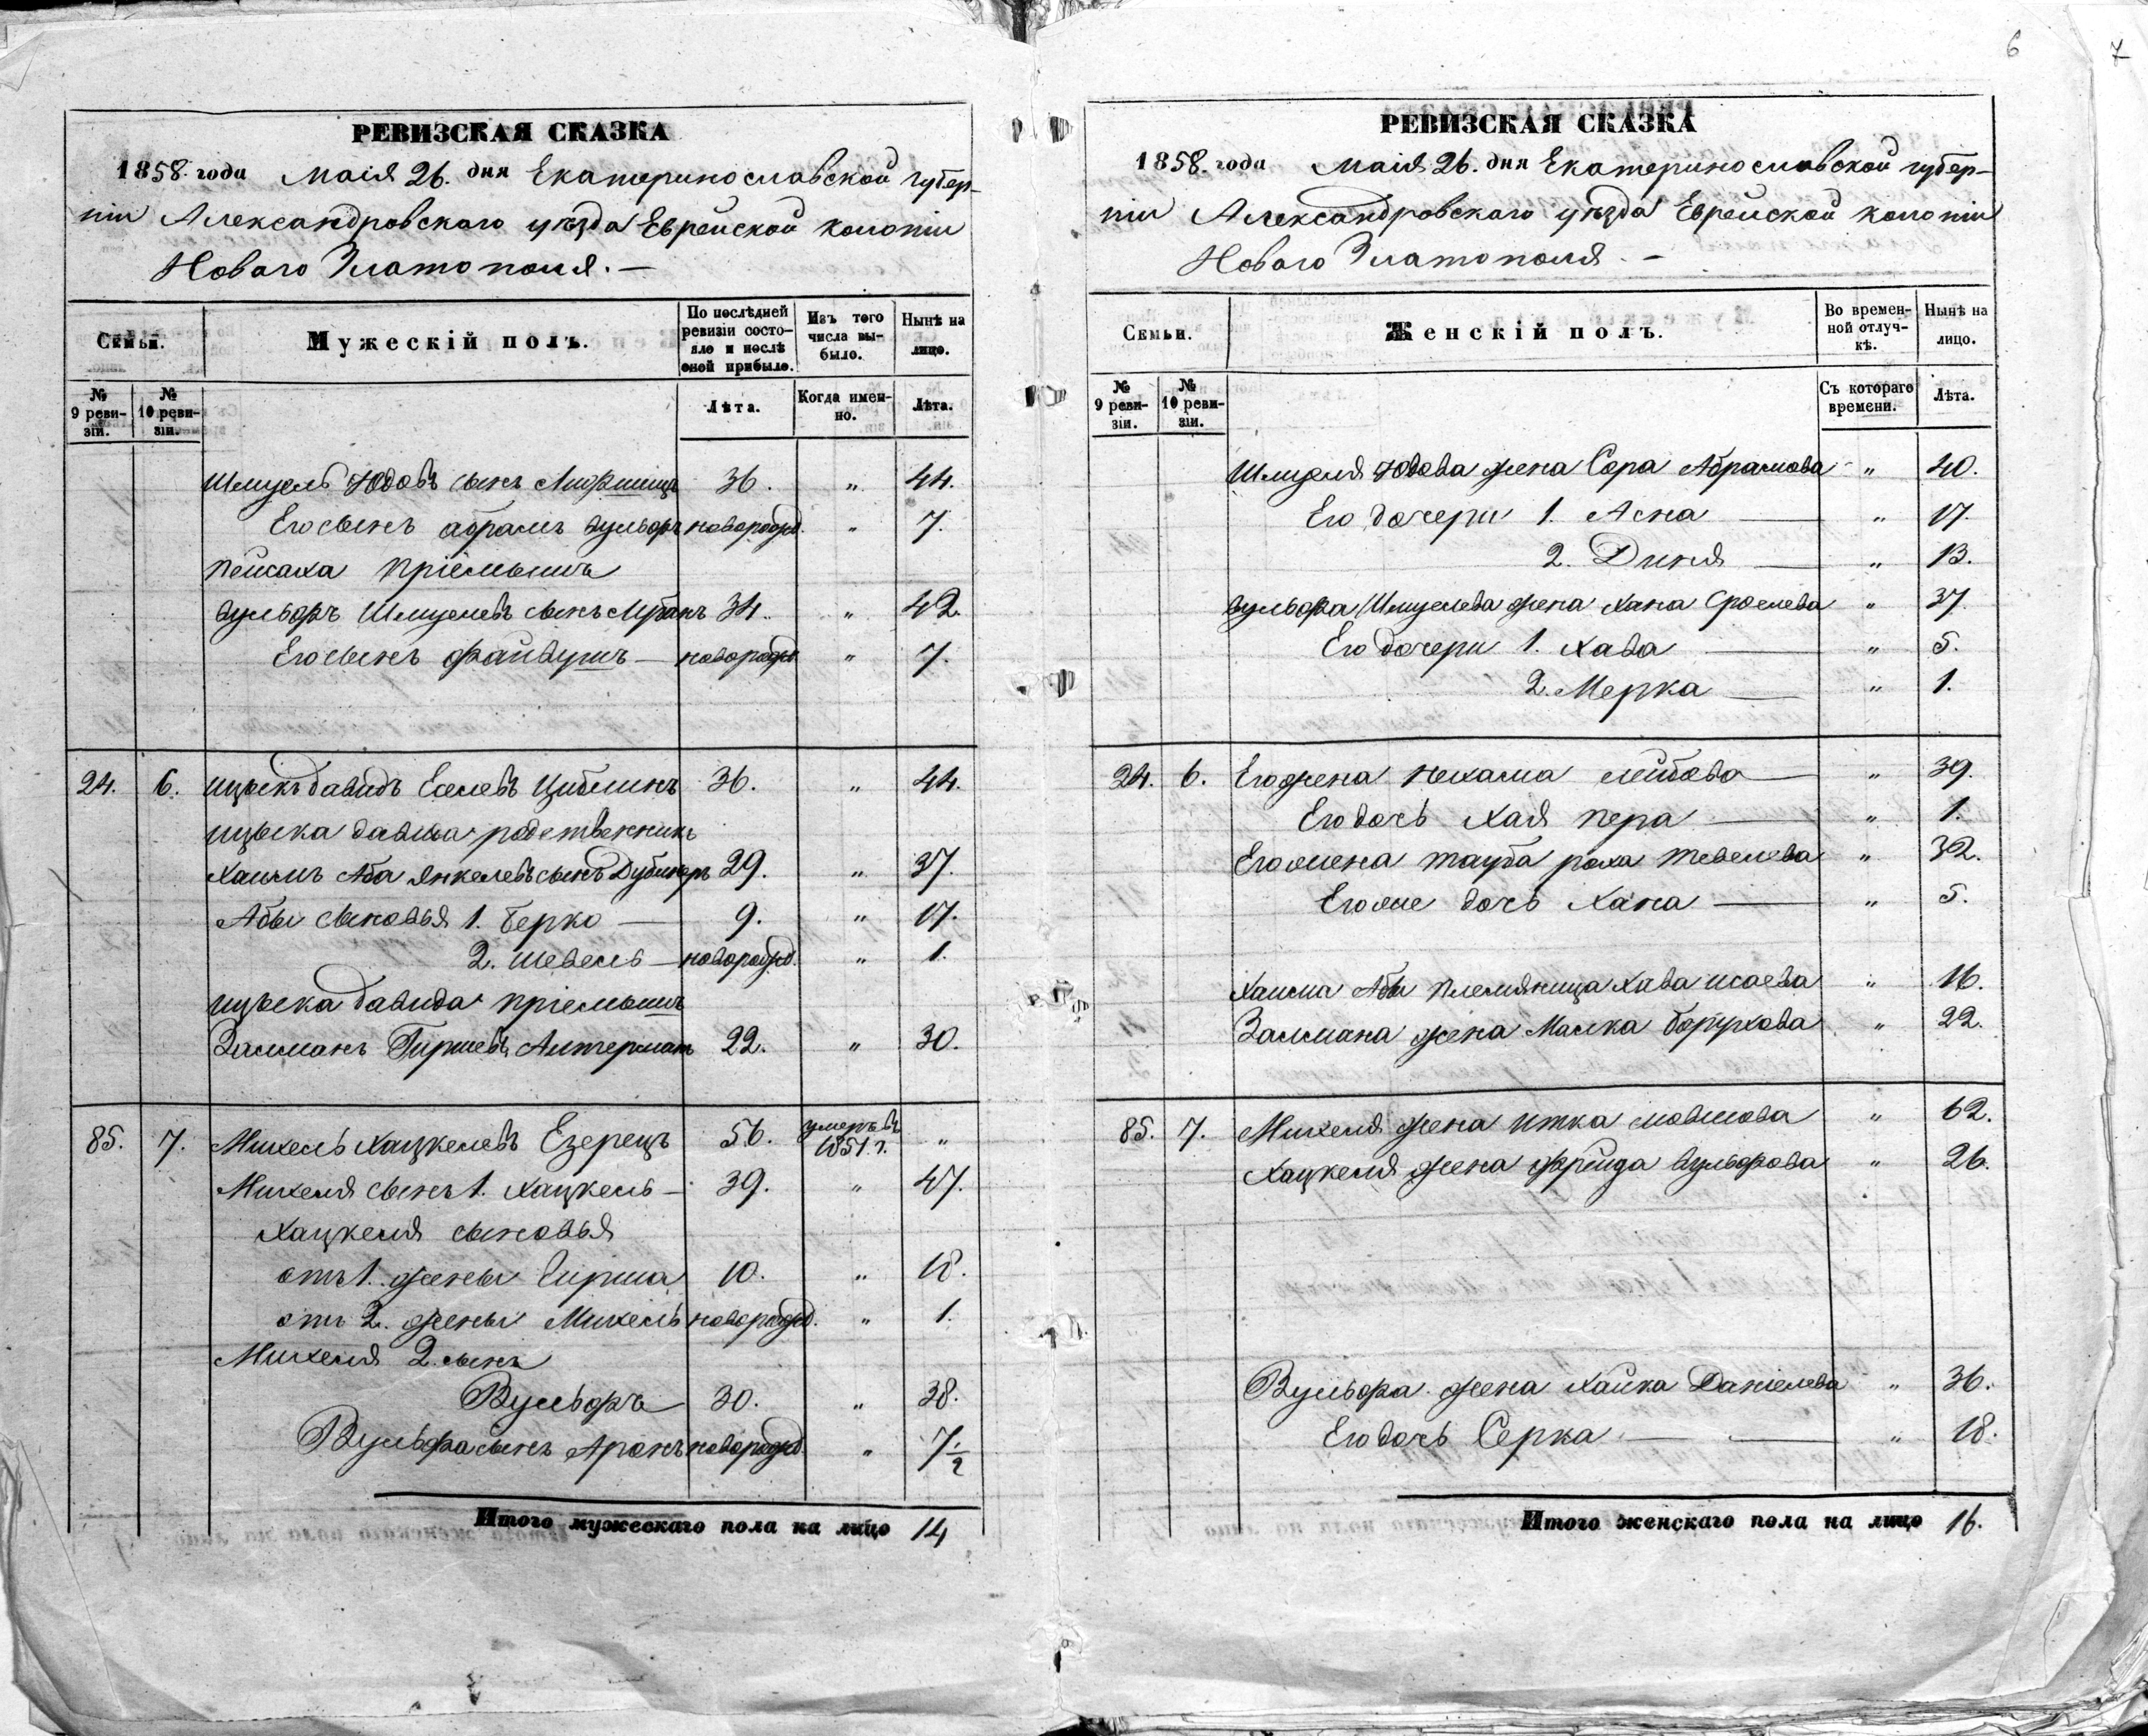 6
7
РЕВИЗСКАЯ СКАЗКА
1858. года Маія 26. дня Екатеринославской губер-
ніи Александровскаго уѣзда Еврейской колоніи
Новаго Златополя. —
Семьи.
Мужескій полъ.
По послѣдней ревизіи состояло и послѣ оной прибыло.
Изъ того числа выбыло.
Нынѣ на лицо.
№ 9 ревизіи.
№ 10 ревизіи.
Лѣта.
Когда именно.
Лѣта.
Шмуель Юдовъ сынъ Лифшицъ 36. " 44.
Его сынъ Абрамъ Вульфъ новорожд. " 7.
Пейсаха пріемышъ
Вульфъ Шмулевъ сынъ 34. " 42.
Его сынъ Файвушъ — новорожд " 7.
24. 6. Ицыкъ Давидъ Еселевъ Цыблинъ 36. " 44.
Ицыка Давида родственникъ
Хаимъ Аба Янкелевъ сынъ Дубинеръ 29. " 37.
Абы сыновья 1. Берко — 9. " 17.
2. Шевель — новорожд. " 1.
Ицыка Давида пріемышъ
Залманъ Гиршевъ Алтерманъ 22. " 30.
85. 7. Михель Хацкелевъ Езерецъ 56. умеръ въ 1851 г. "
Михеля сынъ 1. Хацкель — 39. " 47.
Хацкеля сыновья
отъ 1. жены Гирша 10. " 18.
отъ 2. жены Михель новорожд. " 1.
Михеля 2. сынъ
Вульфъ 30. " 38.
Вульфа сынъ Аронъ новорожд. " 7 1/2
Итого мужескаго пола на лицо 14
РЕВИЗСКАЯ СКАЗКА
1858. года Маія 26. дня Екатеринославской губер-
ніи Александровскаго уѣзда Еврейской колоніи
Новаго Златополя. —
Семьи.
Женскій полъ.
Во временной отлучкѣ.
Нынѣ на лицо.
№ 9 ревизіи.
№ 10 ревизіи.
Съ котораго времени.
Лѣта.
Шмуеля Юдова жена Сора Абрамова " 40.
Его дочери 1. Асна — " 17.
2. Диня — " 13.
Вульфа Шмуелева жена Хана Сроелева " 37.
Его дочери 1. Хава — " 5.
2. Мерка — " 1.
24. 6. Его жена Нехама Лейбова — " 39.
Его дочь Хая Пера — " 1.
Его жена Тауба Роха Тевелева " 32.
Его же дочь Хана — " 5.
Хаима Абы племяница Хава Исаева " 16.
Залмана жена Малка Борухова " 22.
85. 7. Михеля жена Итка Мовшова " 62.
Хацкеля жена Фрейда Вульфова " 26.
Вульфа жена Хайка Даніелева " 36.
Его дочь Серка — — " 18.
Итого женскаго пола на лицо 16.